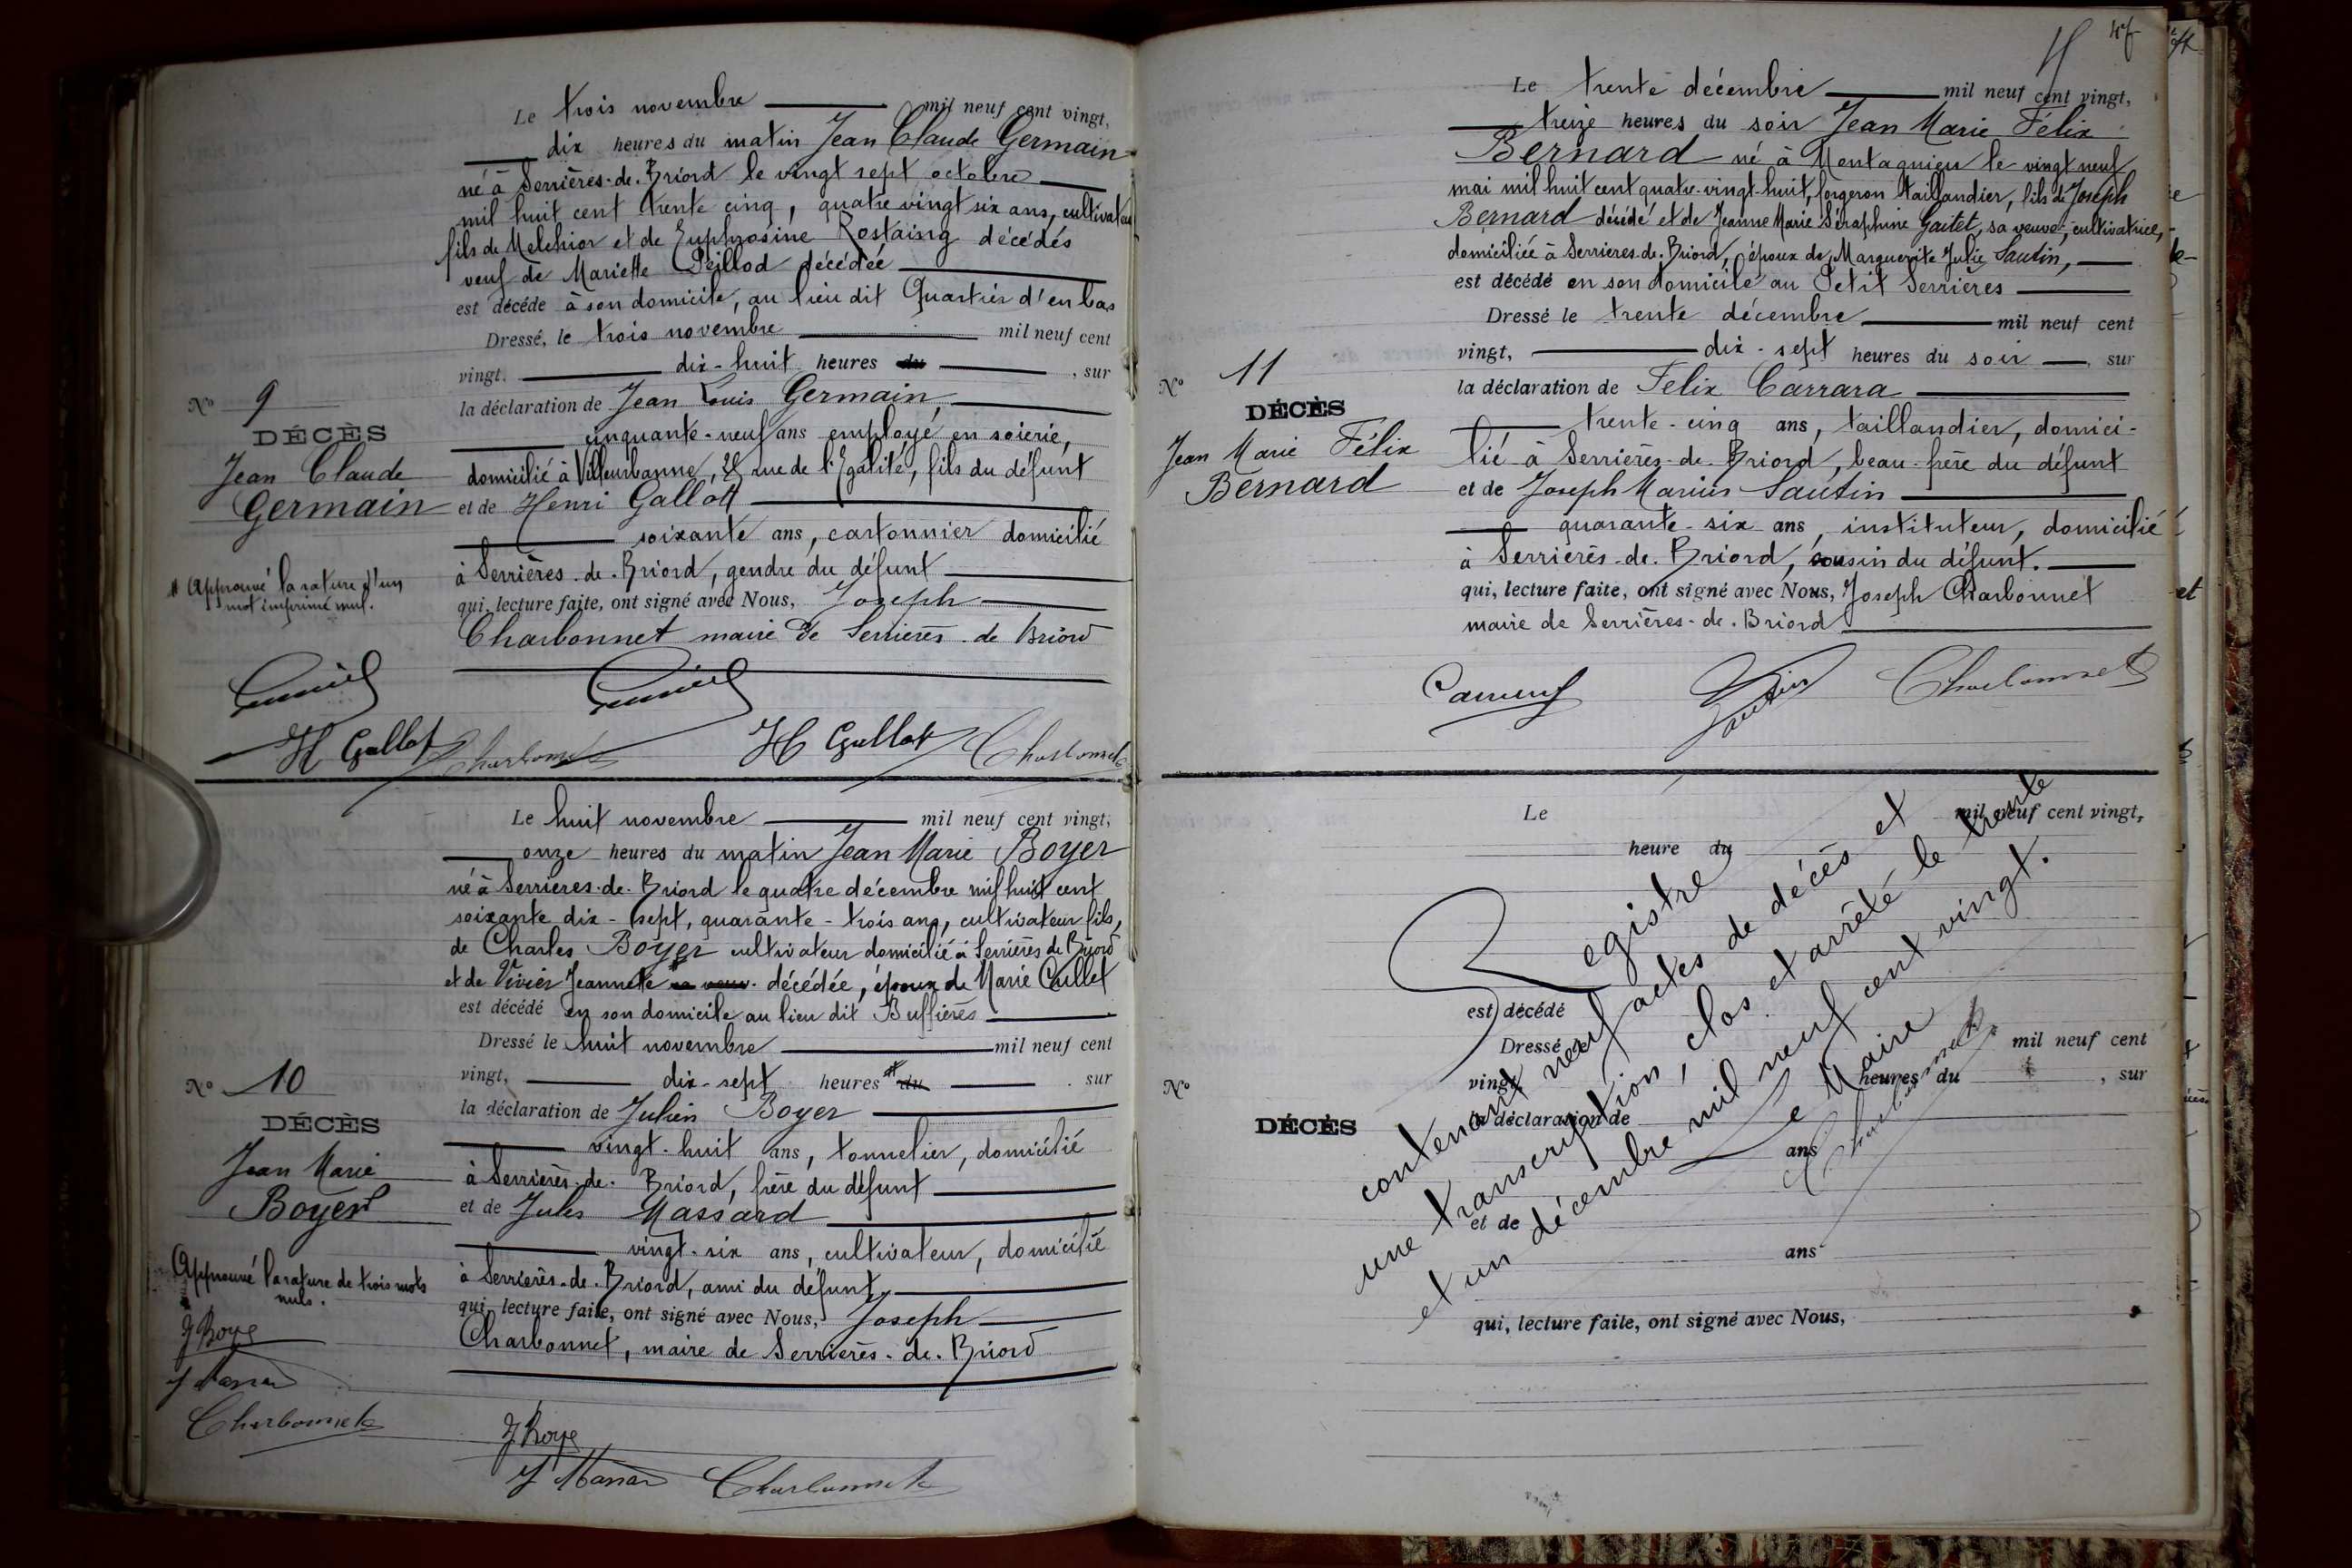 Le trois novembre mil neuf cent vingt,
dix heures du matin Jean Claude Germain
né à Serrières-de-Briord le vingt sept octobre
mil huit cent trente cinq, quatre vingt six ans, cultivateur
fils de Melchior et de Euphrosine Rostaing décédés
veuf de Mariette Peillod décédée
est décédé à son domicile, au lieu dit Quartier d'en bas
Dressé, le trois novembre mil neuf cent
vingt, dix-huit heures du , sur
la déclaration de Jean Louis Germain,
cinquante-neuf ans employé en soierie,
domicilié à Villeurbanne, rue de l'Egalité, fils du défunt
et de Henri Gallott
soixante ans, cartonnier domicilié
à Serrières-de-Briord, gendre du défunt
qui, lecture faite, ont signé avec Nous, Joseph
Charbonnet maire de Serrières-de-Briord
N° 9
DÉCÈS
Jean Claude
Germain
Approuvé la rature d'un
mot imprimé nul.
H Gallot Charbonnet
H Gallot Charbonnet
Le huit novembre mil neuf cent vingt,
onze heures du matin Jean Marie Boyer
né à Serrières-de-Briord le quatre décembre mil huit cent
soixante dix-sept, quarante-trois ans, cultivateur fils,
de Charles Boyer cultivateur domicilié à Serrières de Briord
et de Vivier Jeannette sa veuve décédée, époux de Marie Cullet
est décédé en son domicile au lieu dit Buffières
Dressé le huit novembre mil neuf cent
vingt, dix-sept heures du . sur
la déclaration de Julien Boyer
vingt-huit ans, tonnelier, domicilié
à Serrières-de-Briord, frère du défunt
et de Jules Massard
vingt-six ans, cultivateur, domicilié
à Serrières-de-Briord, ami du défunt,
qui, lecture faite, ont signé avec Nous, Joseph
Charbonnet, maire de Serrières-de-Briord
N° 10
DÉCÈS
Jean Marie
Boyer
Approuvé la rature de trois mots
nuls.
J Boye
J Massar
Charbonnet
J Boye
J Massar Charbonnet
47
Le trente décembre mil neuf cent vingt,
treize heures du soir Jean Marie Félix
Bernard né à Montagnieu le vingt neuf
mai mil huit cent quatre-vingt-huit, forgeron taillandier, fils de Joseph
Bernard décédé et de Jeanne Marie Séraphine Gaitet, sa veuve, cultivatrice,
domiciliée à Serrières-de-Briord, époux de Marguerite Julie Sautin,
est décédé en son domicile au Petit Serrières
Dressé le trente décembre mil neuf cent
vingt, dix-sept heures du soir , sur
la déclaration de Félix Carrara
trente-cinq ans, taillandier, domici-
lié à Serrières-de-Briord, beau-frère du défunt
et de Joseph Marius Sautin
quarante-six ans, instituteur, domicilié
à Serrières-de-Briord, cousin du défunt.
qui, lecture faite, ont signé avec Nous, Joseph Charbonnet
maire de Serrières-de-Briord
N° 11
DÉCÈS
Jean Marie Félix
Bernard
Sautin Charbonnet
Le mil neuf cent vingt,
heure du
est décédé
Dressé le mil neuf cent
vingt, heures du , sur
la déclaration de
ans
et de
ans
qui, lecture faite, ont signé avec Nous,
N°
DÉCÈS
Registre
contenant neuf actes de décès et
une transcription, clos et arrêté le trente
et un décembre mil neuf cent vingt.
Le Maire
Charbonnet